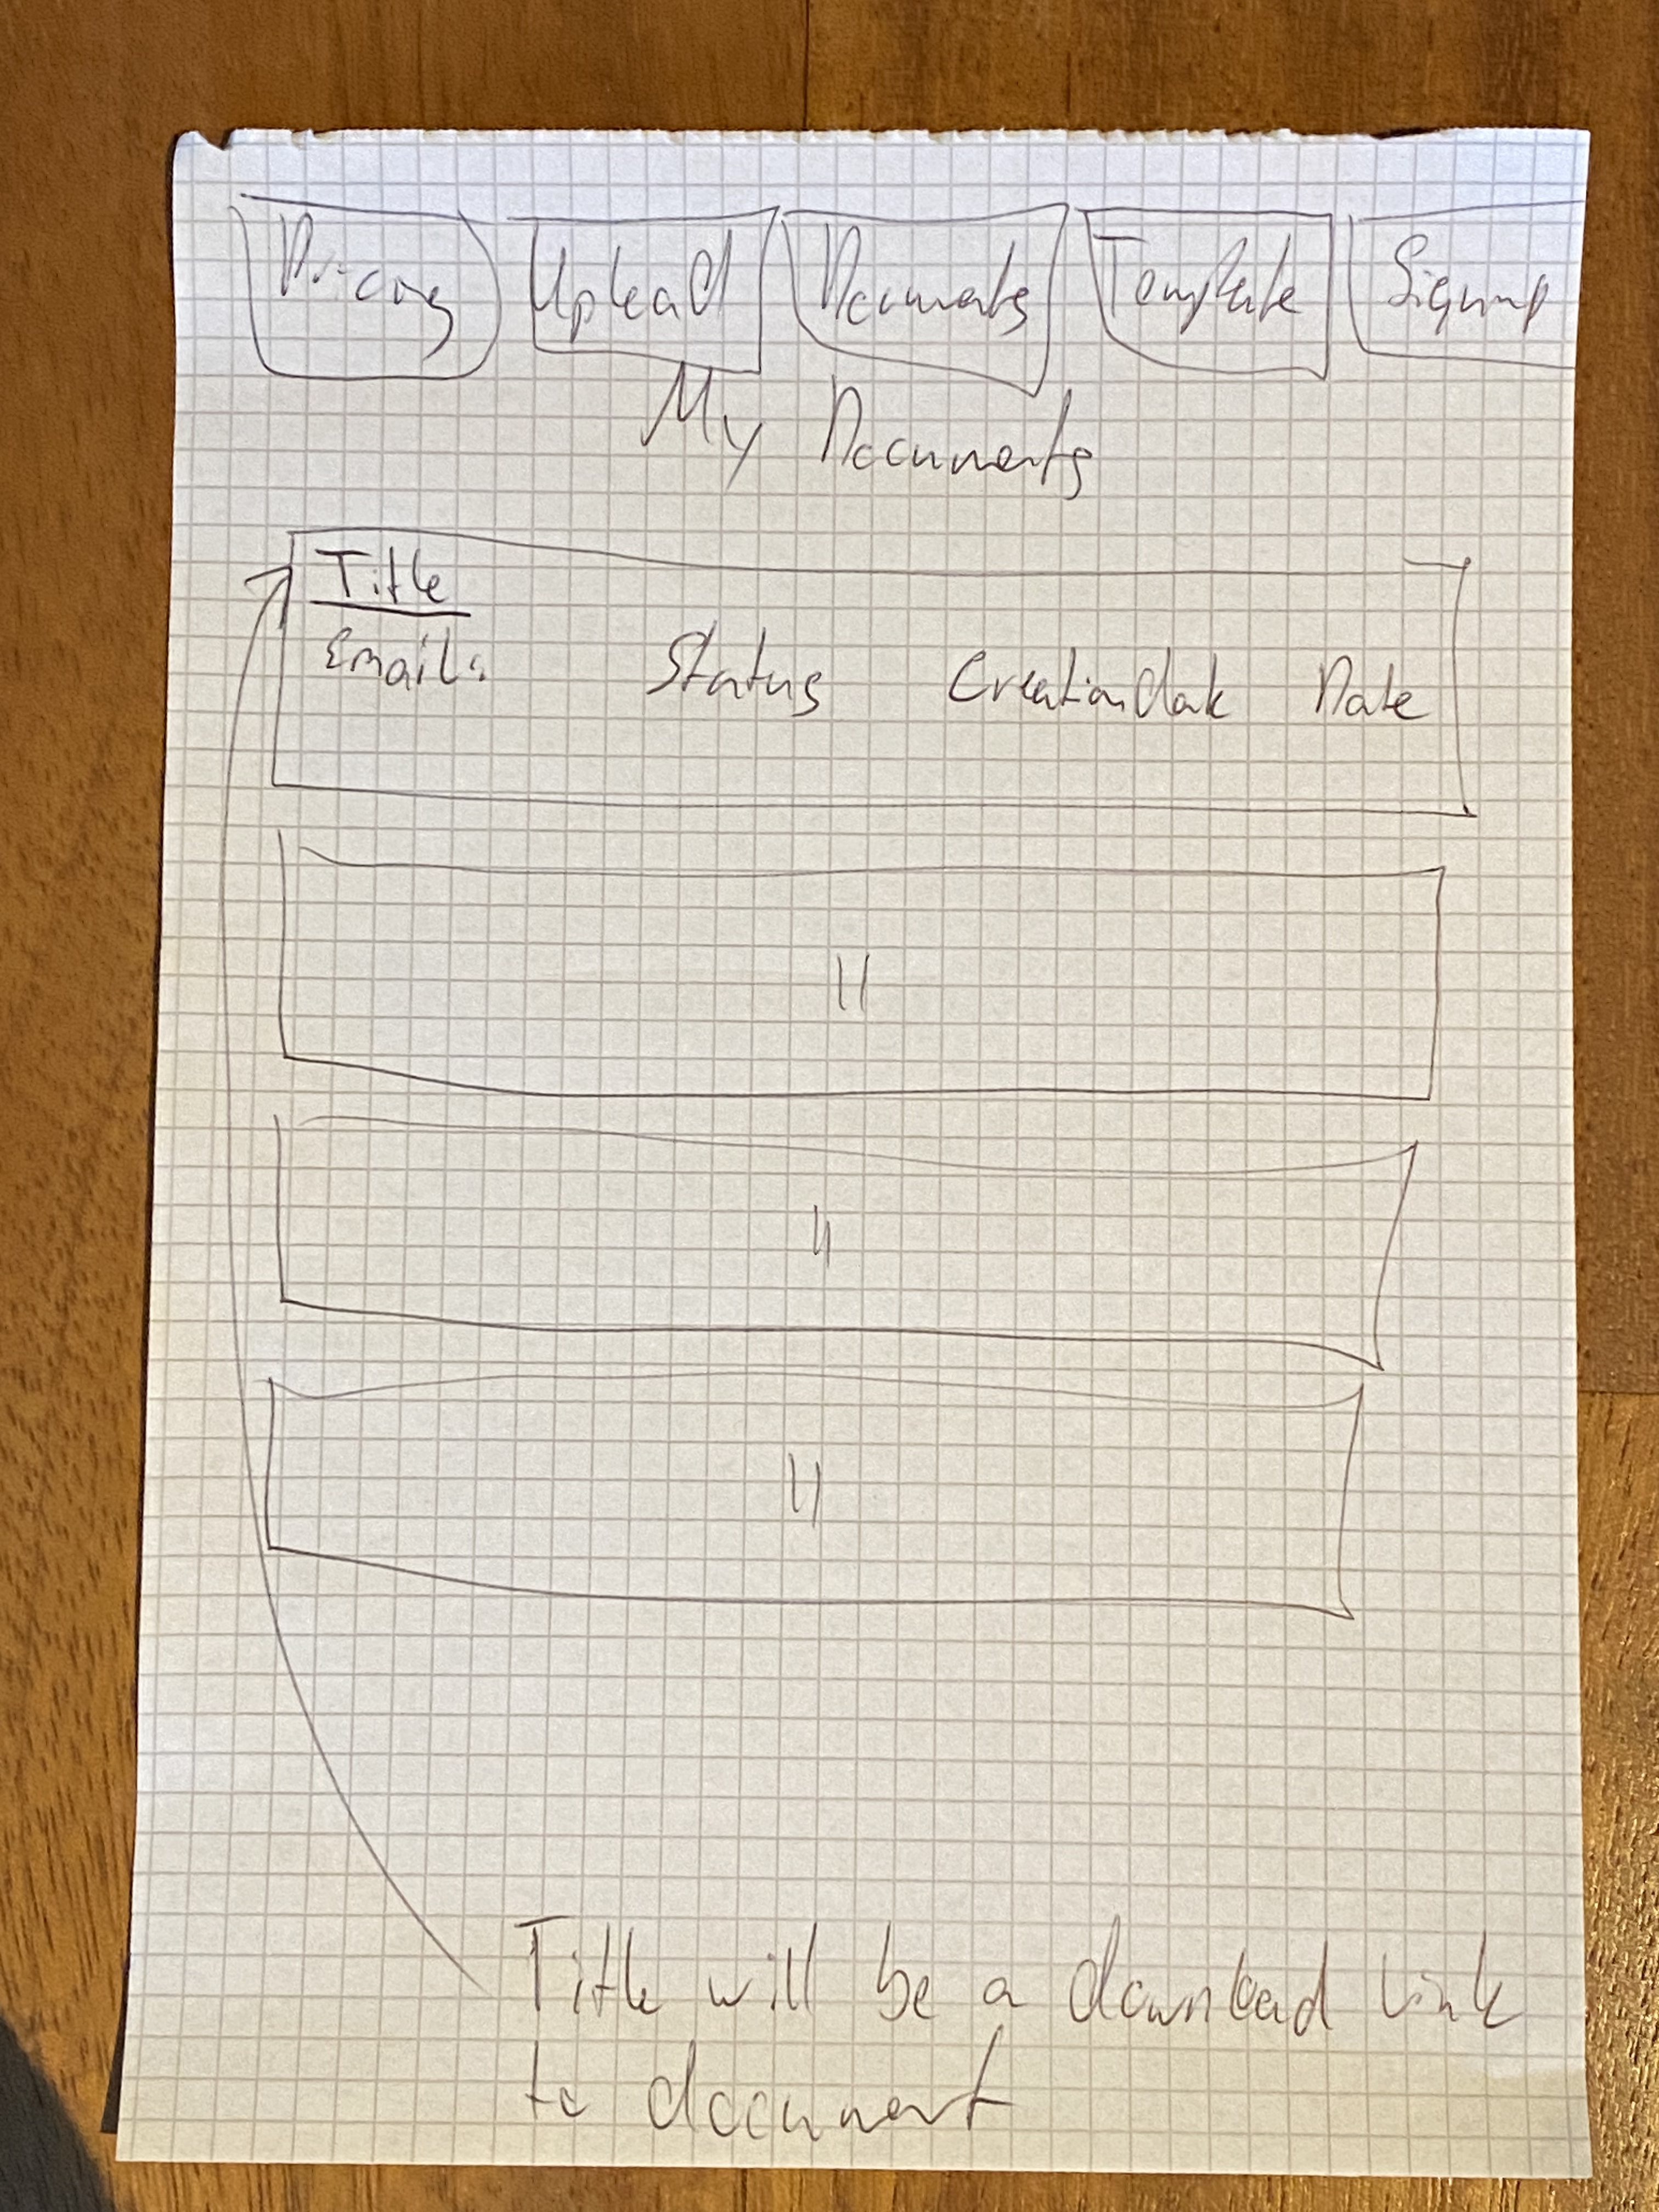 Pricing Upload Documents Template Signup
My Documents
Title
Email: Status Creationdate Date
"
"
"
Title will be a download link
to document